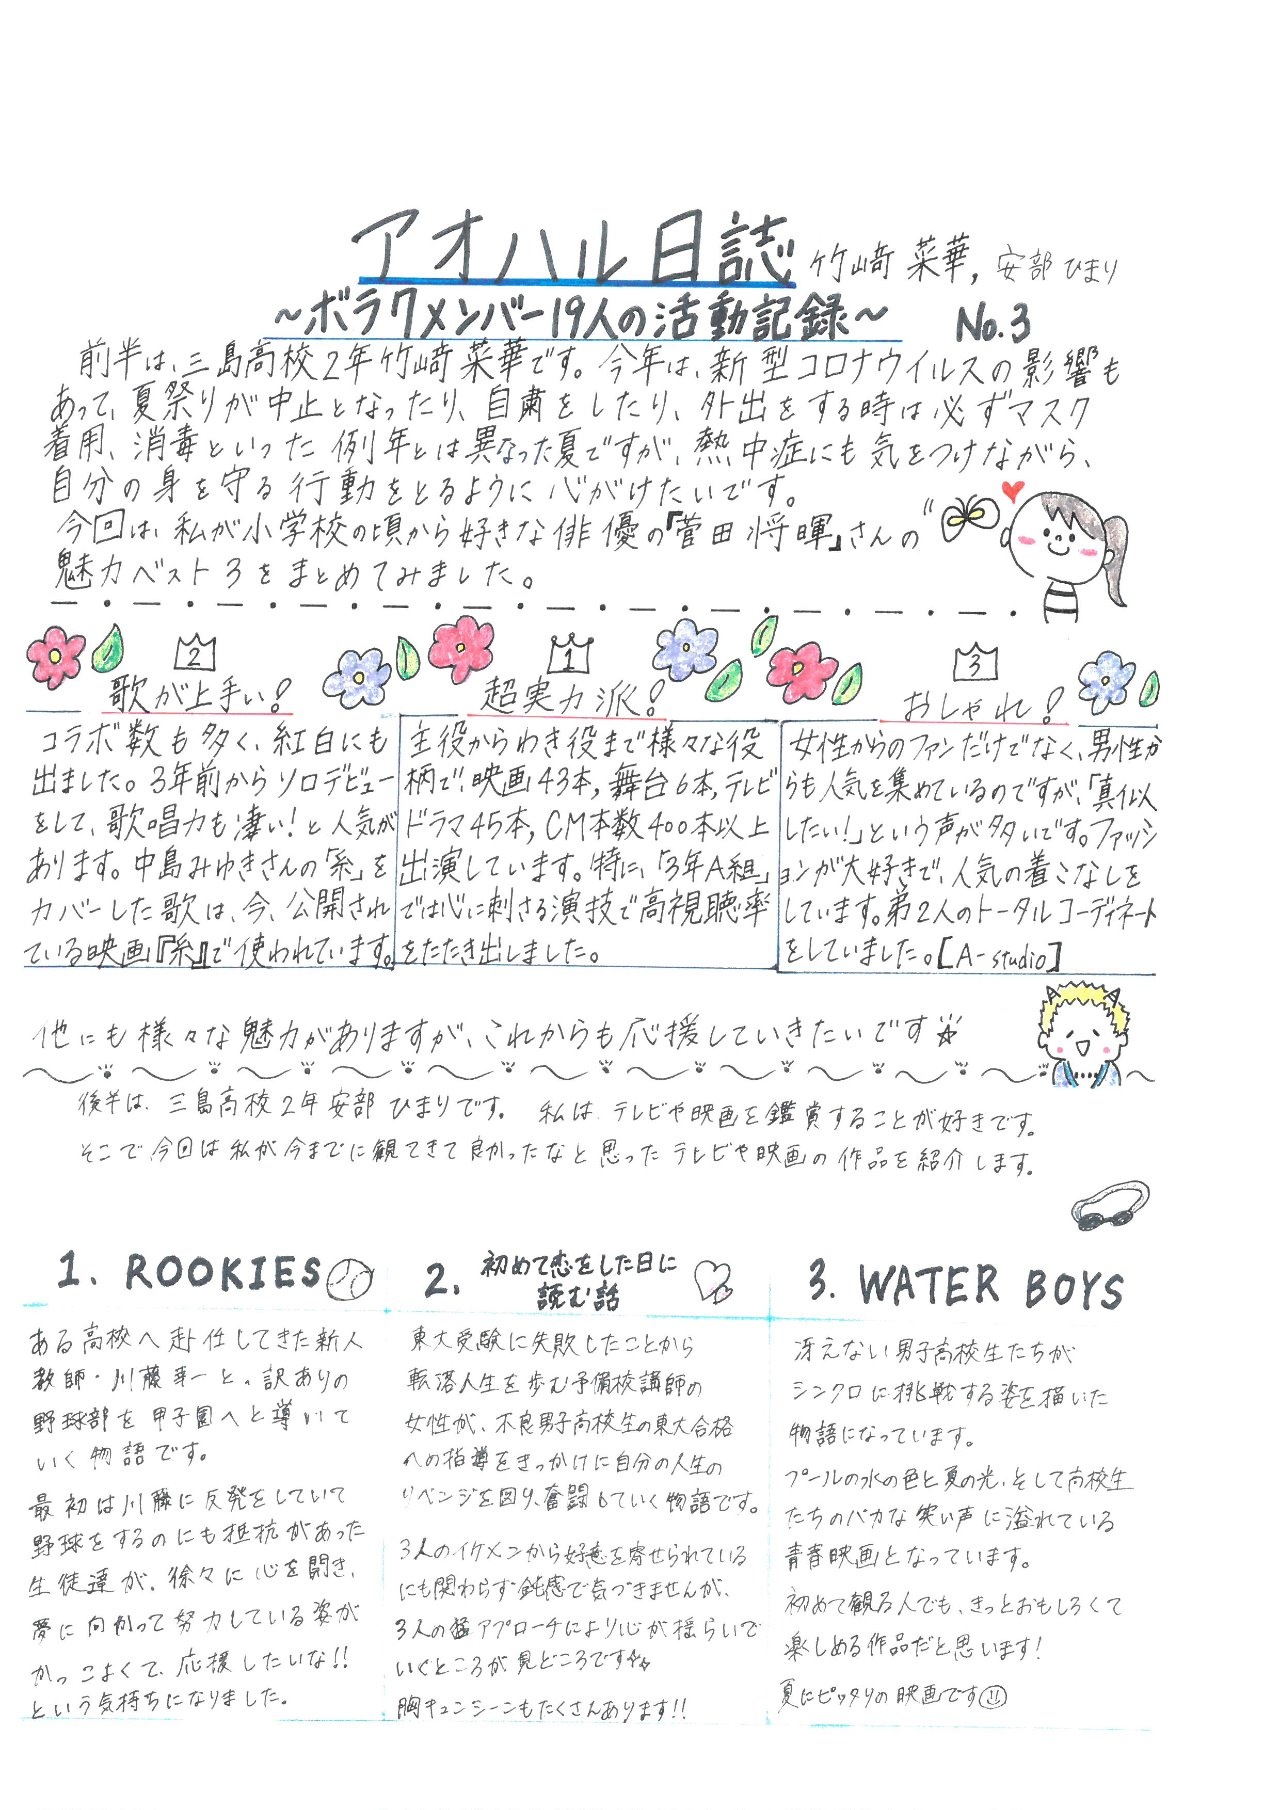 アオハル日誌 竹﨑 菜華, 安部 ひまり
～ボラクメンバー19人の活動記録～ No.3
前半は、三島高校2年竹﨑 菜華です。今年は、新型コロナウイルスの影響も
あって、夏祭りが中止となったり、自粛をしたり、外出をする時は必ずマスク
着用、消毒といった 例年とは異なった夏ですが、熱中症にも気をつけながら、
自分の身を守る行動をとるように心がけたいです。
今回は、私が小学校の頃から好きな俳優の『菅田将暉』さんの"
魅力ベスト3をまとめてみました。
2
歌が上手い!
コラボ数も多く、紅白にも
出ました。3年前からソロデビュー
をして、歌唱力も凄い!と人気が
あります。中島みゆきさんの「糸」を
カバーした歌は、今、公開され
ている映画『糸』で使われています。
1
超実力派!
主役からわき役まで様々な役
柄で、映画43本, 舞台6本, テレビ
ドラマ45本, CM本数400本以上
出演しています。特に、「3年A組」
では心に刺さる演技で高視聴率
をたたき出しました。
3
おしゃれ!
女性からのファンだけでなく、男性か
らも人気を集めているのですが、「真似
したい!」という声が多いです。ファッシ
ョンが大好きで、人気の着こなしを
しています。弟2人のトータルコーディネート
をしていました。[A-studio]
他にも様々な魅力がありますが、これからも応援していきたいです☆
後半は、三島高校2年安部 ひまりです。 私は、テレビや映画を鑑賞することが好きです。
そこで今回は私が今までに観てきて良かったなと思ったテレビや映画の作品を紹介します。
1. ROOKIES
ある高校へ赴任してきた新人
教師・川藤幸一と、訳ありの
野球部を甲子園へと導いて
いく物語です。
最初は川藤に反発をしていて
野球をするのにも抵抗があった
生徒達が、徐々に心を開き、
夢に向かって努力している姿が
かっこよくて、応援したいな!!
という気持ちになりました。
2. 初めて恋をした日に
読む話
東大受験に失敗したことから
転落人生を歩む予備校講師の
女性が、不良男子高校生の東大合格
への指導をきっかけに自分の人生の
リベンジを図り、奮闘していく物語です。
3人のイケメンから好意を寄せられている
にも関わらず鈍感で気づきませんが、
3人の猛アプローチにより心が揺らいで
いくところが見どころです☆☆
胸キュンシーンもたくさんあります!!
3. WATER BOYS
冴えない男子高校生たちが
シンクロに挑戦する姿を描いた
物語になっています。
プールの水の色と夏の光、そして高校生
たちのバカな笑い声に溢れている
青春映画となっています。
初めて観る人でも、きっとおもしろくて
楽しめる作品だと思います!
夏にピッタリの映画です